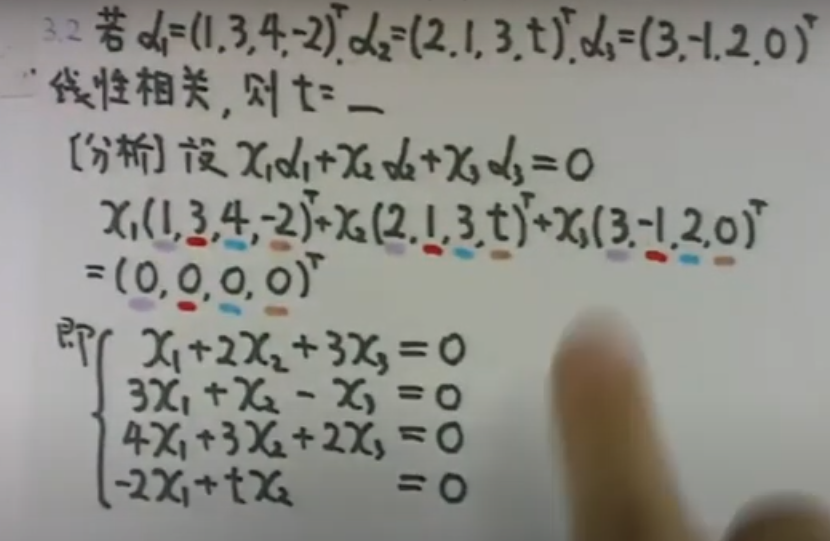 3.2 若 α₁=(1,3,4,-2)ᵀ, α₂=(2,1,3,t)ᵀ, α₃=(3,-1,2,0)ᵀ
线性相关,则 t= _
[分析] 设 x₁α₁+x₂α₂+x₃α₃=0
x₁(1,3,4,-2)ᵀ+x₂(2,1,3,t)ᵀ+x₃(3,-1,2,0)ᵀ
=(0,0,0,0)ᵀ
即{ x₁+2x₂+3x₃=0
3x₁+x₂-x₃=0
4x₁+3x₂+2x₃=0
-2x₁+tx₂=0